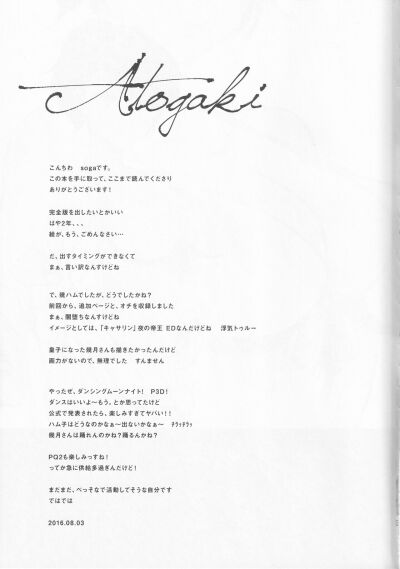 Atogaki
こんちわ　sogaです。
この本を手に取って、ここまで読んでくださり
ありがとうございます！
完全版を出したいとかいい
はや2年、、、
絵が、もう、ごめんなさい…
だ、出すタイミングができなくて
まぁ、言い訳なんすけどね
で、幾ハムでしたが、どうでしたかね？
前回から、追加ページと、オチを収録しました
まぁ、闇堕ちなんすけどね
イメージとしては、「キャサリン」夜の帝王 EDなんだけどね　浮気トゥルー
皇子になった幾月さんも描きたかったんだけど
画力がないので、無理でした　すんません
やったぜ、ダンシングムーンナイト！　P3D！
ダンスはいいよ～もう。とか思ってたけど
公式で発表されたら、楽しみすぎてヤバい！！
ハム子はどうなのかなぁ～出ないかなぁ～　ﾁﾗｯﾁﾗｯ
幾月さんは踊れんのかね？踊るんかね？
PQ2も楽しみっすね！
ってか急に供給多過ぎんだけど！
まだまだ、べっそなで活動してそうな自分です
ではでは
2016.08.03